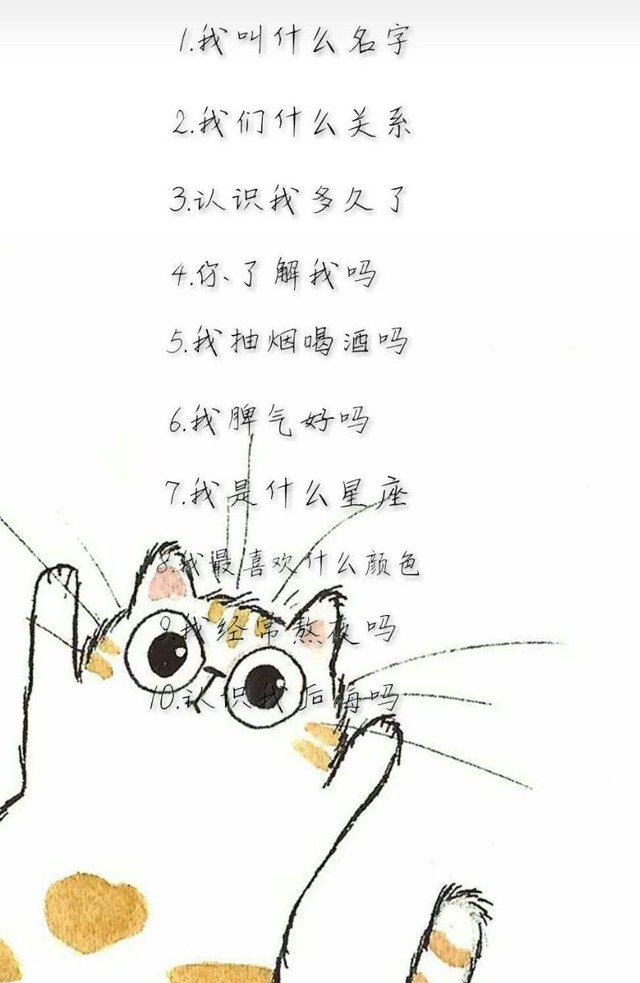 1.我叫什么名字
2.我们什么关系
3.认识我多久了
4.你了解我吗
5.我抽烟喝酒吗
6.我脾气好吗
7.我是什么星座
8.我最喜欢什么颜色
9.我经常熬夜吗
10.认识我后悔吗